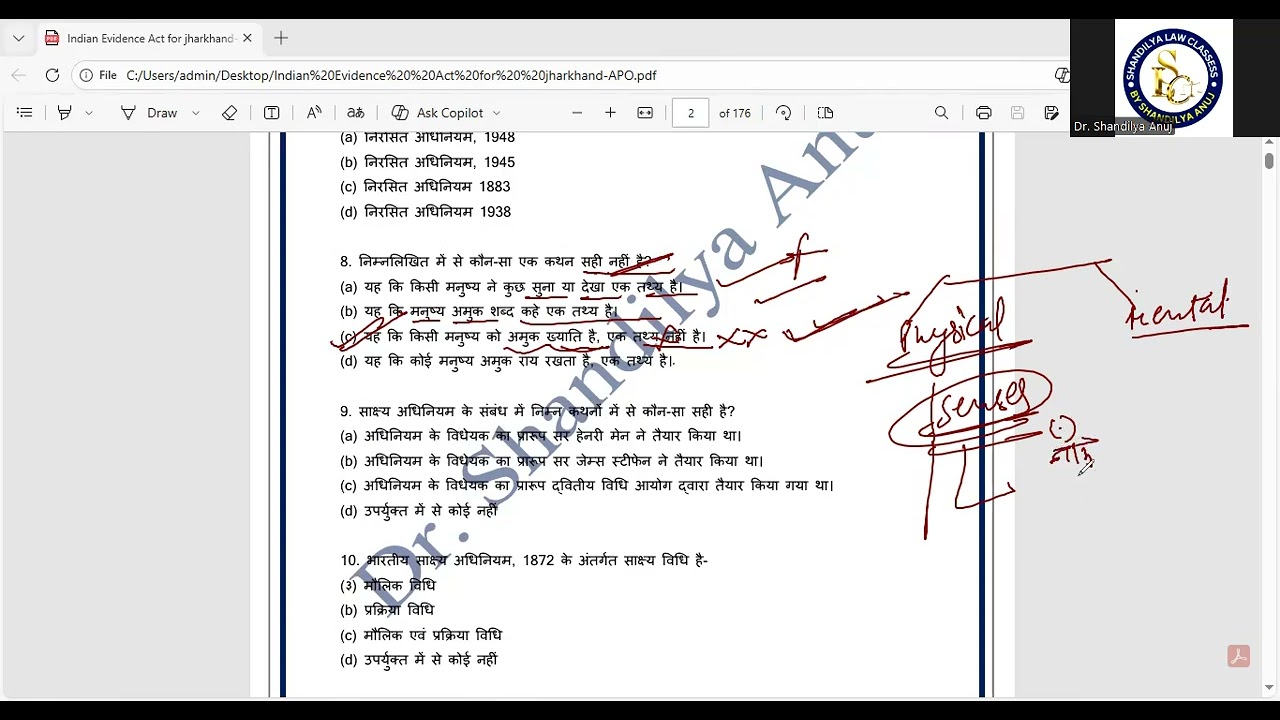 Indian Evidence Act for jharkhand-
File C:/Users/admin/Desktop/Indian%20Evidence%20%20Act%20for%20%20jharkhand-APO.pdf
Draw Ask Copilot 2 of 176
SHANDILYA LAW CLASSESS
BY SHANDILYA ANUJ
Dr. Shandilya Anuj
(a) निरसित अधिनियम, 1948
(b) निरसित अधिनियम, 1945
(c) निरसित अधिनियम 1883
(d) निरसित अधिनियम 1938
8. निम्नलिखित में से कौन-सा एक कथन सही नहीं है?
(a) यह कि किसी मनुष्य ने कुछ सुना या देखा एक तथ्य है।
(b) यह कि मनुष्य अमुक शब्द कहे एक तथ्य है।
(c) यह कि किसी मनुष्य को अमुक ख्याति है, एक तथ्य नहीं है।
(d) यह कि कोई मनुष्य अमुक राय रखता है, एक तथ्य है।.
9. साक्ष्य अधिनियम के संबंध में निम्न कथनों में से कौन-सा सही है?
(a) अधिनियम के विधेयक का प्रारूप सर हेनरी मेन ने तैयार किया था।
(b) अधिनियम के विधेयक का प्रारूप सर जेम्स स्टीफेन ने तैयार किया था।
(c) अधिनियम के विधेयक का प्रारूप द्वितीय विधि आयोग द्वारा तैयार किया गया था।
(d) उपर्युक्त में से कोई नहीं
10. भारतीय साक्ष्य अधिनियम, 1872 के अंतर्गत साक्ष्य विधि है-
(३) मौलिक विधि
(b) प्रक्रिया विधि
(c) मौलिक एवं प्रक्रिया विधि
(d) उपर्युक्त में से कोई नहीं
Dr. Shandilya Anu
f
Physical
mental
senses